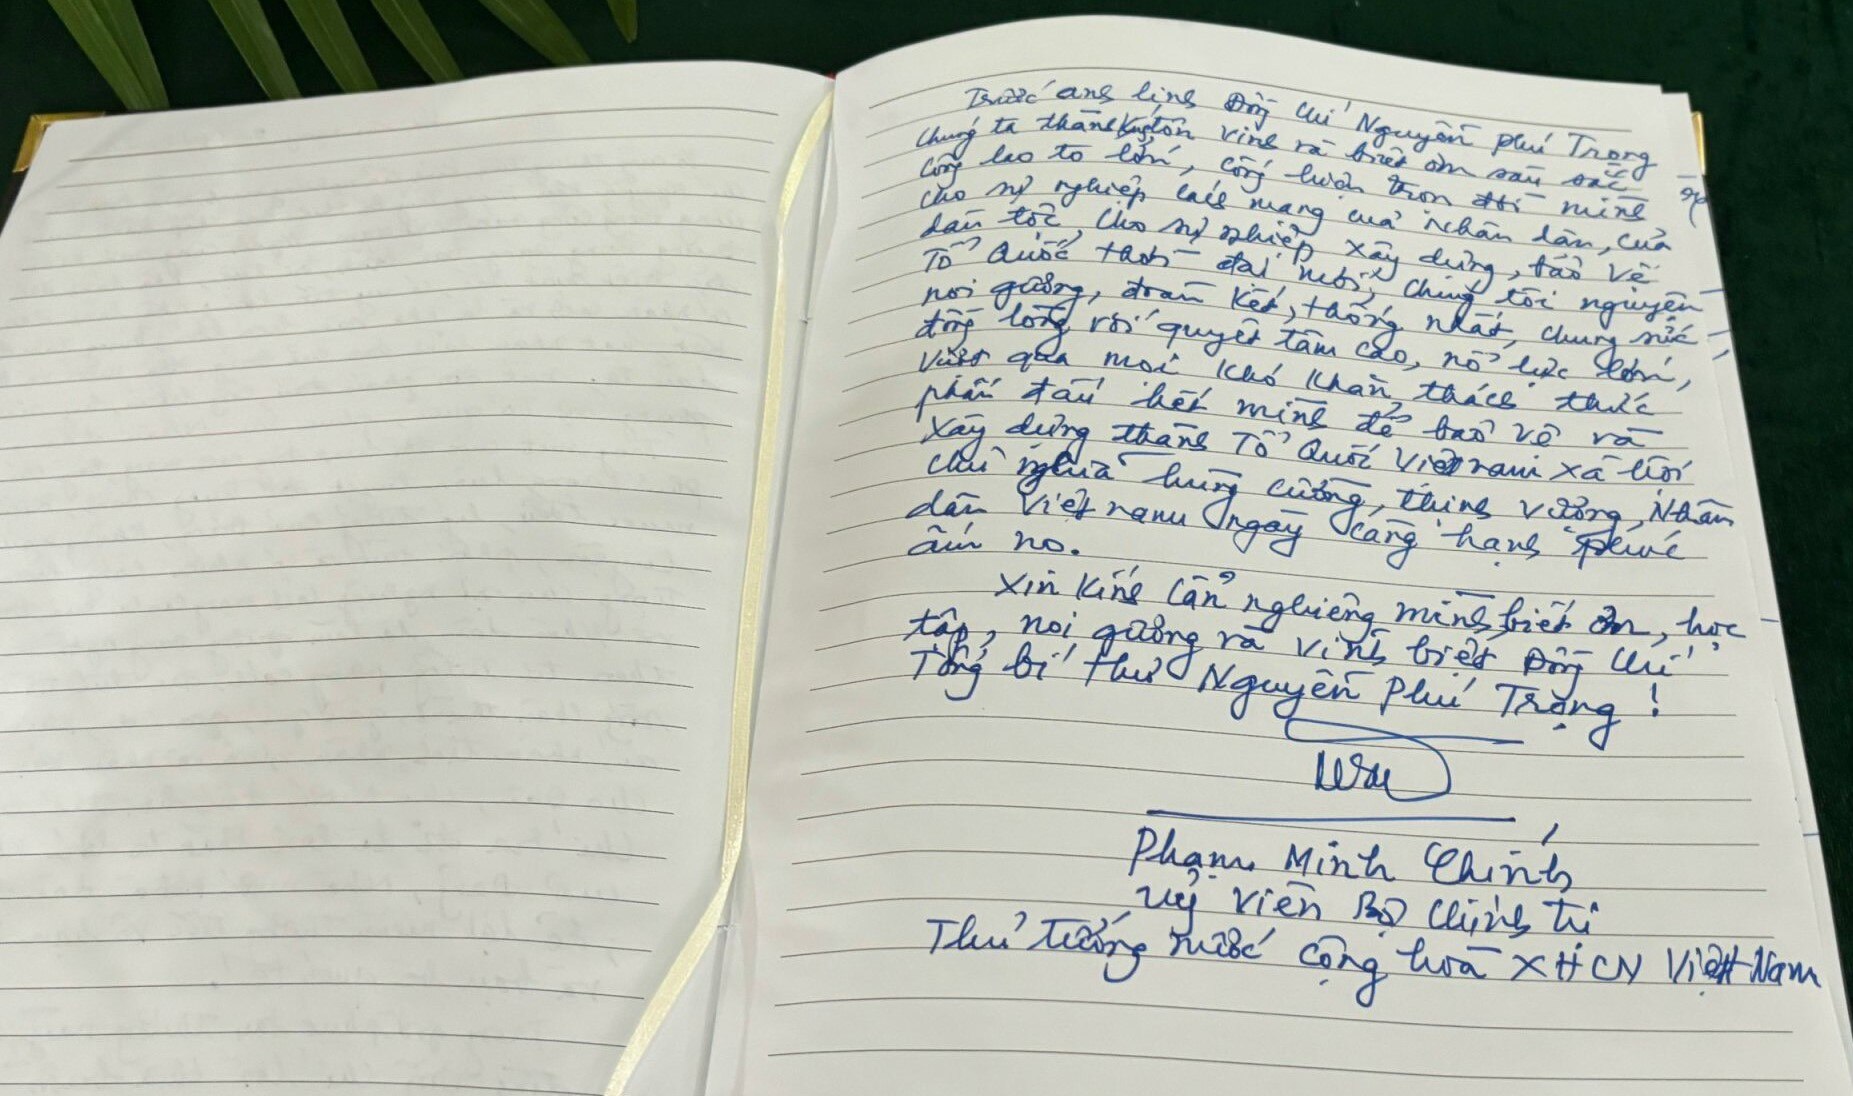 Trước anh linh Đồng chí Nguyễn Phú Trọng
chúng ta thành kính tôn vinh và biết ơn sâu sắc
công lao to lớn, cống hiến trọn đời mình
cho sự nghiệp cách mạng của Nhân dân, của
dân tộc, cho sự nghiệp xây dựng, bảo vệ
Tổ Quốc thời đại mới, chúng tôi nguyện
noi gương, đoàn kết, thống nhất, chung sức
đồng lòng với quyết tâm cao, nỗ lực lớn,
vượt qua mọi khó khăn thách thức
phấn đấu hết mình để bảo vệ và
xây dựng thành Tổ Quốc Việt nam xã hội
chủ nghĩa hùng cường, thịnh vượng, Nhân
dân Việt nam ngày càng hạnh phúc
ấm no.
Xin kính cẩn nghiêng mình, biết ơn, học
tập, noi gương và vĩnh biệt Đồng chí
Tổng bí thư Nguyễn Phú Trọng!
Phạm Minh Chính
Uỷ viên Bộ Chính trị
Thủ tướng nước Cộng hoà XHCN Việt Nam